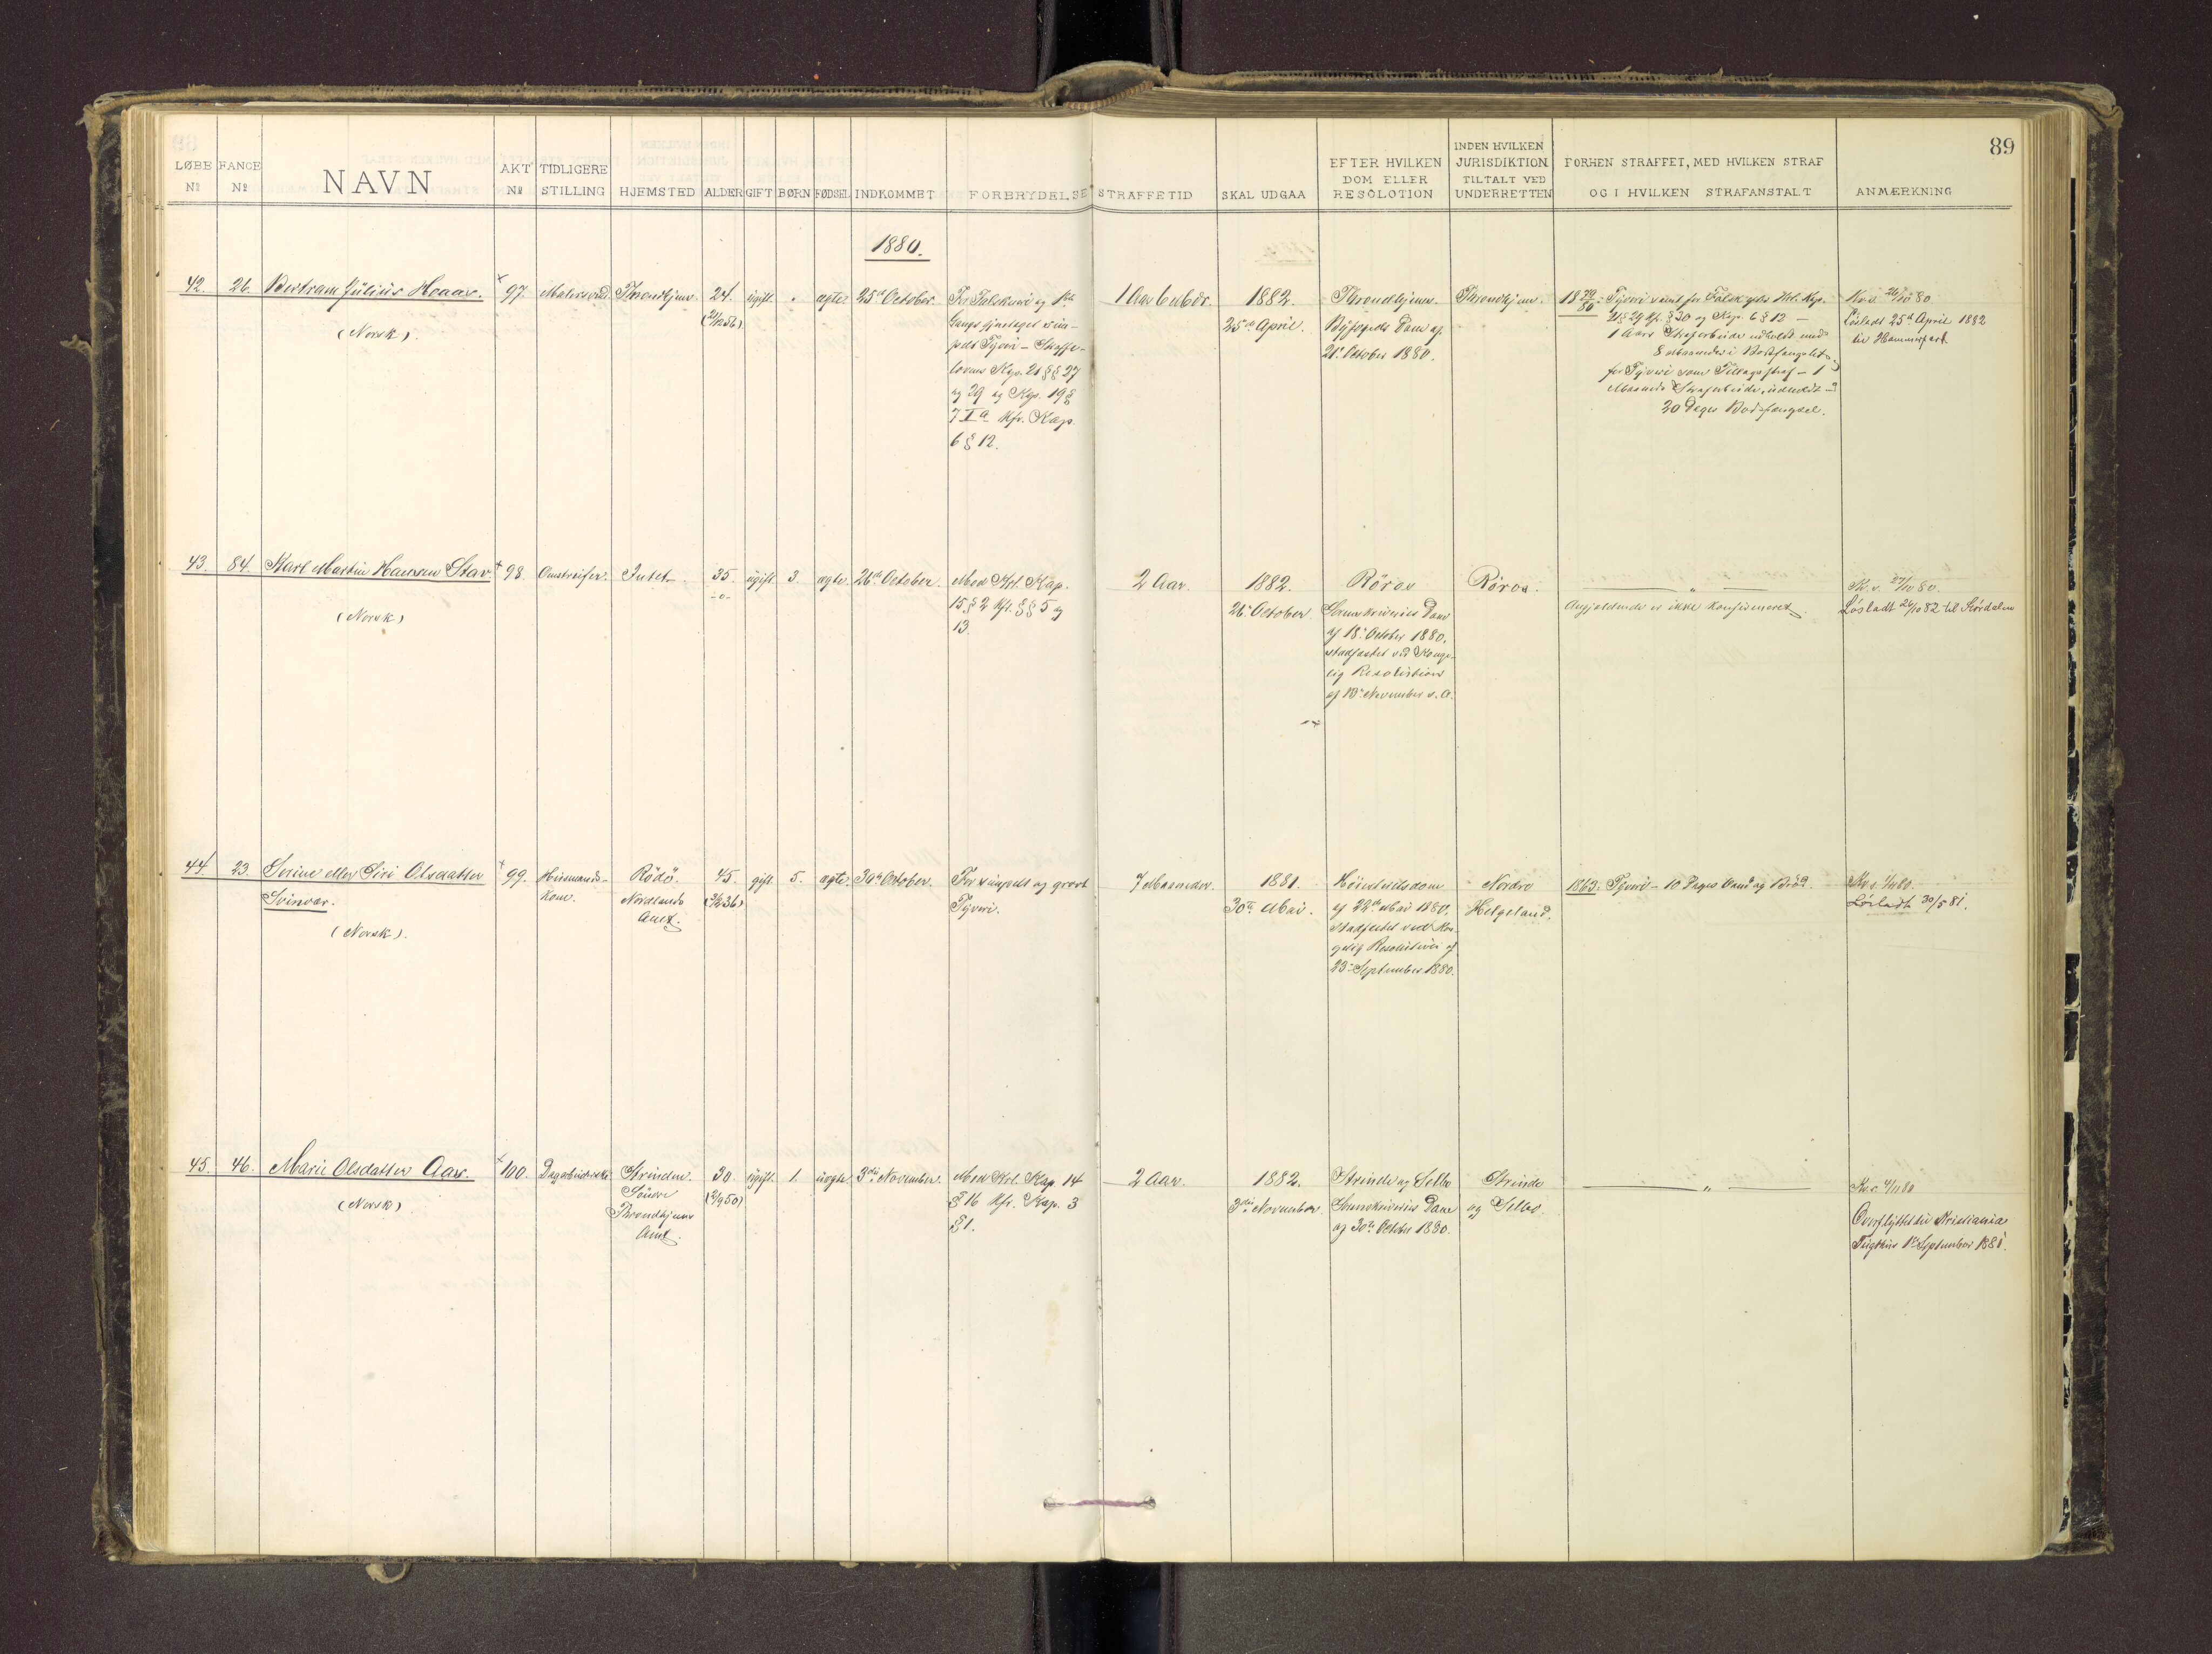 89
LØBE Nº
FANGE Nº
NAVN
AKT Nº
TIDLIGERE STILLING
HJEMSTED
ALDER
GIFT
BØRN
FØDSEL
INDKOMMET
FORBRYDELSE
STRAFFETID
SKAL UDGAA
EFTER HVILKEN DOM ELLER RESOLOTION
INDEN HVILKEN JURISDIKTION TILTALT VED UNDERRETTEN
FORHEN STRAFFET, MED HVILKEN STRAF OG I HVILKEN STRAFANSTALT
ANMÆRKNING
1880.
42. 26. Bertram Julius Hoaas.
(Norsk).
97. Malersvend Throndhjem. 24. ugift. " ægte 25de October.
For Falskneri og
simpelt Tyveri - Straffe-
lovens Kap. 21 §§ 27
og 29 og Kap. 19 §
7 I a Kfr. Kap.
6 § 12.
1 Aar 6 Mdr.
1882.
25de April.
Throndhjems
Byfogeds Dom af
21de October 1880.
Throndhjem.
1879/80: Tyveri samt for Falsk
21 § 29 kfr. § 30 og Kap. 6 § 12 -
1 Aars Strafarbeide udholdt med
8 Maaneder i Bodsfængslet -
for Tyveri som Tillægsstraf - 1
Maaneds Strafarbeide, udholdt -
20 Dages Bodsfængsel.
Kv. s. 26/10 80
Løsladt 25de April 1882
til Hammerfest
43. 84. Karl Martin Hansen Stav.
(Norsk)
98 Omstreifer. Intet. 35. ugift. 3. ægte. 26de October.
Mod Krl. Kap.
15 § 2 Kfr. §§ 5 og
13.
2 Aar.
1882.
26de October
Røros
Sorenskriveries Dom
af 18de October 1880,
stadfæstet ved Konge-
lig Resolution
af 10de November s. A.
Røros.
"
Angjældende er ikke konfirmeret
Kv. s. 27/10 80.
Løsladt 26/10 82 til
44. 23. Serine eller Siri Olsdatter
Svinvær.
(Norsk).
99. Huusmands-
Kone.
Rødø.
Nordlands
Amt.
45. gift. 5. ægte. 30de October.
For simpelt og grovt
Tyveri.
7 Maaneder.
1881.
30te Mai.
Høiesteretsdom
af 22de Mai 1880,
stadfæstet ved Kon-
gelig Resolution af
23de September 1880.
Nordre
Helgeland.
1863: Tyveri - 10 Dages Vand og Brød.
Kv. s. 1/11 80.
Løsladt 30/5 81.
45. 46. Marie Olsdatter Aas.
(Norsk)
100. Dagarbeiderske
Strinden.
Søndre
Throndhjems
Amt.
30.
(2/9 50)
ugift. 1. uægte 3die November.
Mod Krl. Kap. 14
§ 16 Kfr. Kap. 3
§ 1.
2 Aar.
1882.
3die November
Strinde og Selbo
Sorenskriveries Dom
af 30te October 1880.
Strinde
og Selbo.
"
Kv. s. 4/11 80
Overflyttet til Kristiania
Tugthus 1ste September 1881.